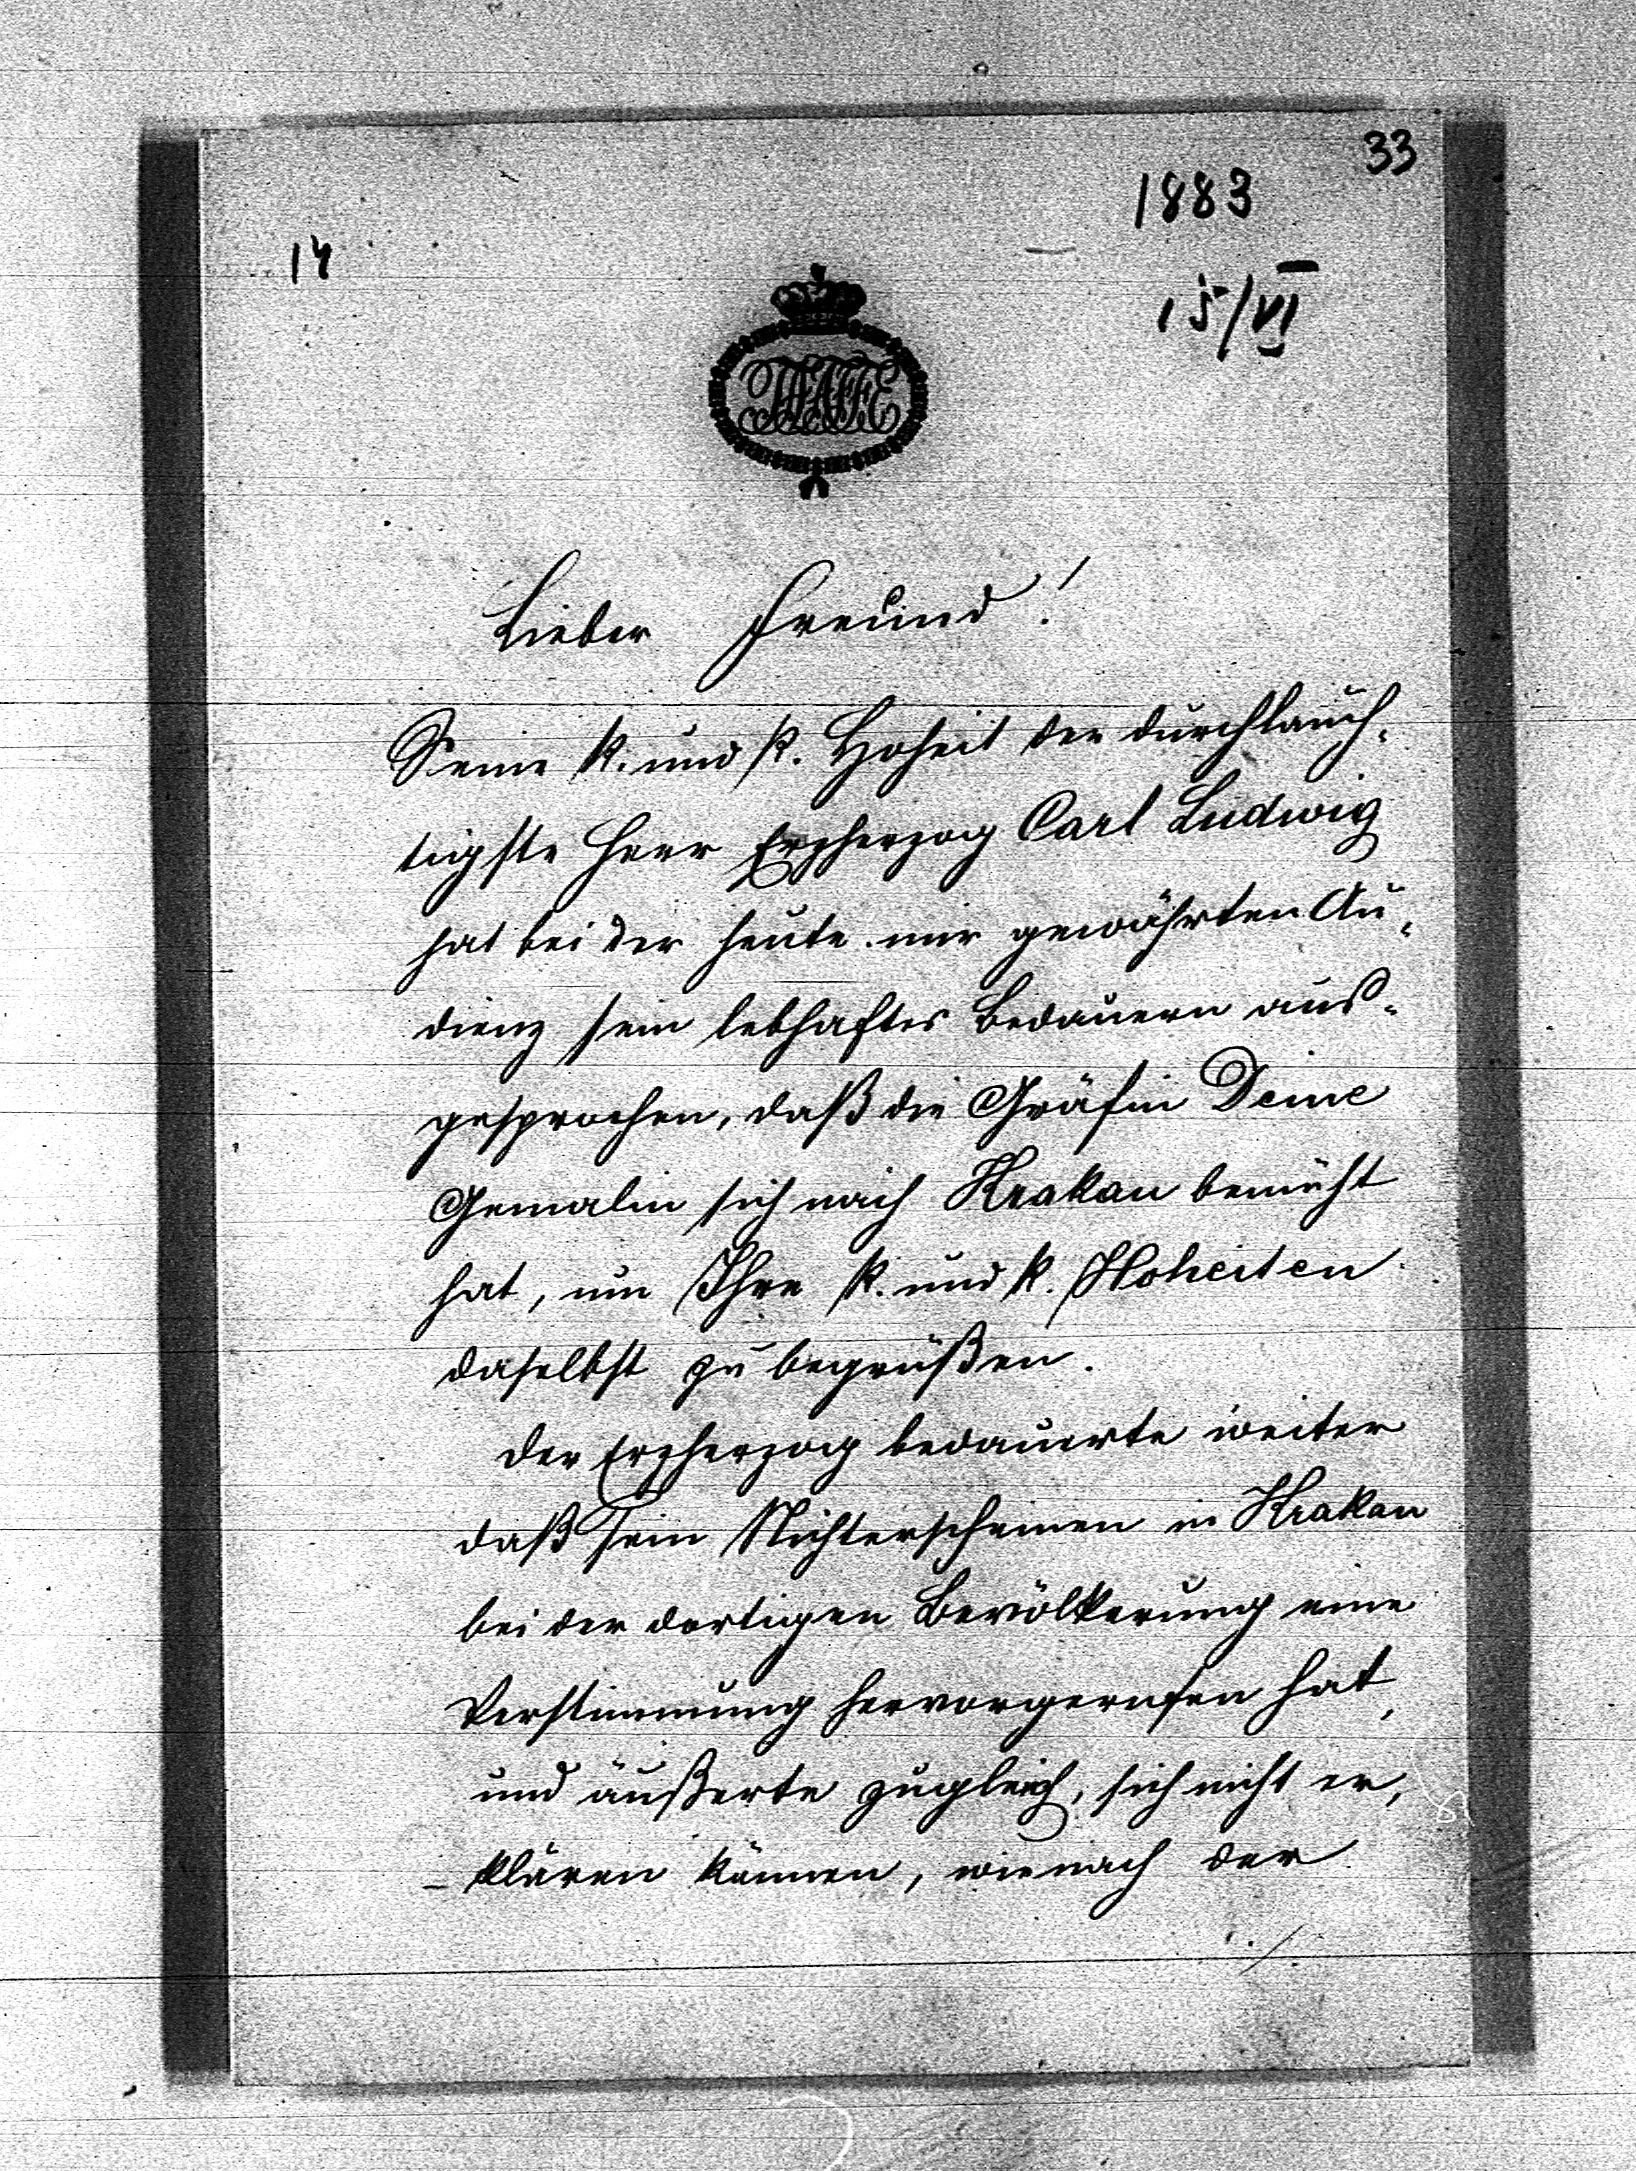 33
1883
14
15/VI
TAAFFE
Lieber Freund!
Seine k. und k. Hoheit der durchlauch-
tigste Herr Erzherzog Carl Ludwig
hat bei der heute mir gewährten Au-
dienz sein lebhaftes Bedauern aus-
gesprochen, daß die Gräfin Deine
Gemalin sich nach Krakau bemüht
hat, um Ihre k. und k. Hoheiten
daselbst zu begrüßen.
Der Erzherzog bedauerte weiter
daß Sein Nichterscheinen in Krakau
bei der dortigen Bevölkerung eine
Verstimmung hervorgerufen hat,
und äußerte zugleich, sich nicht er-
klären können, wie nach der
./.